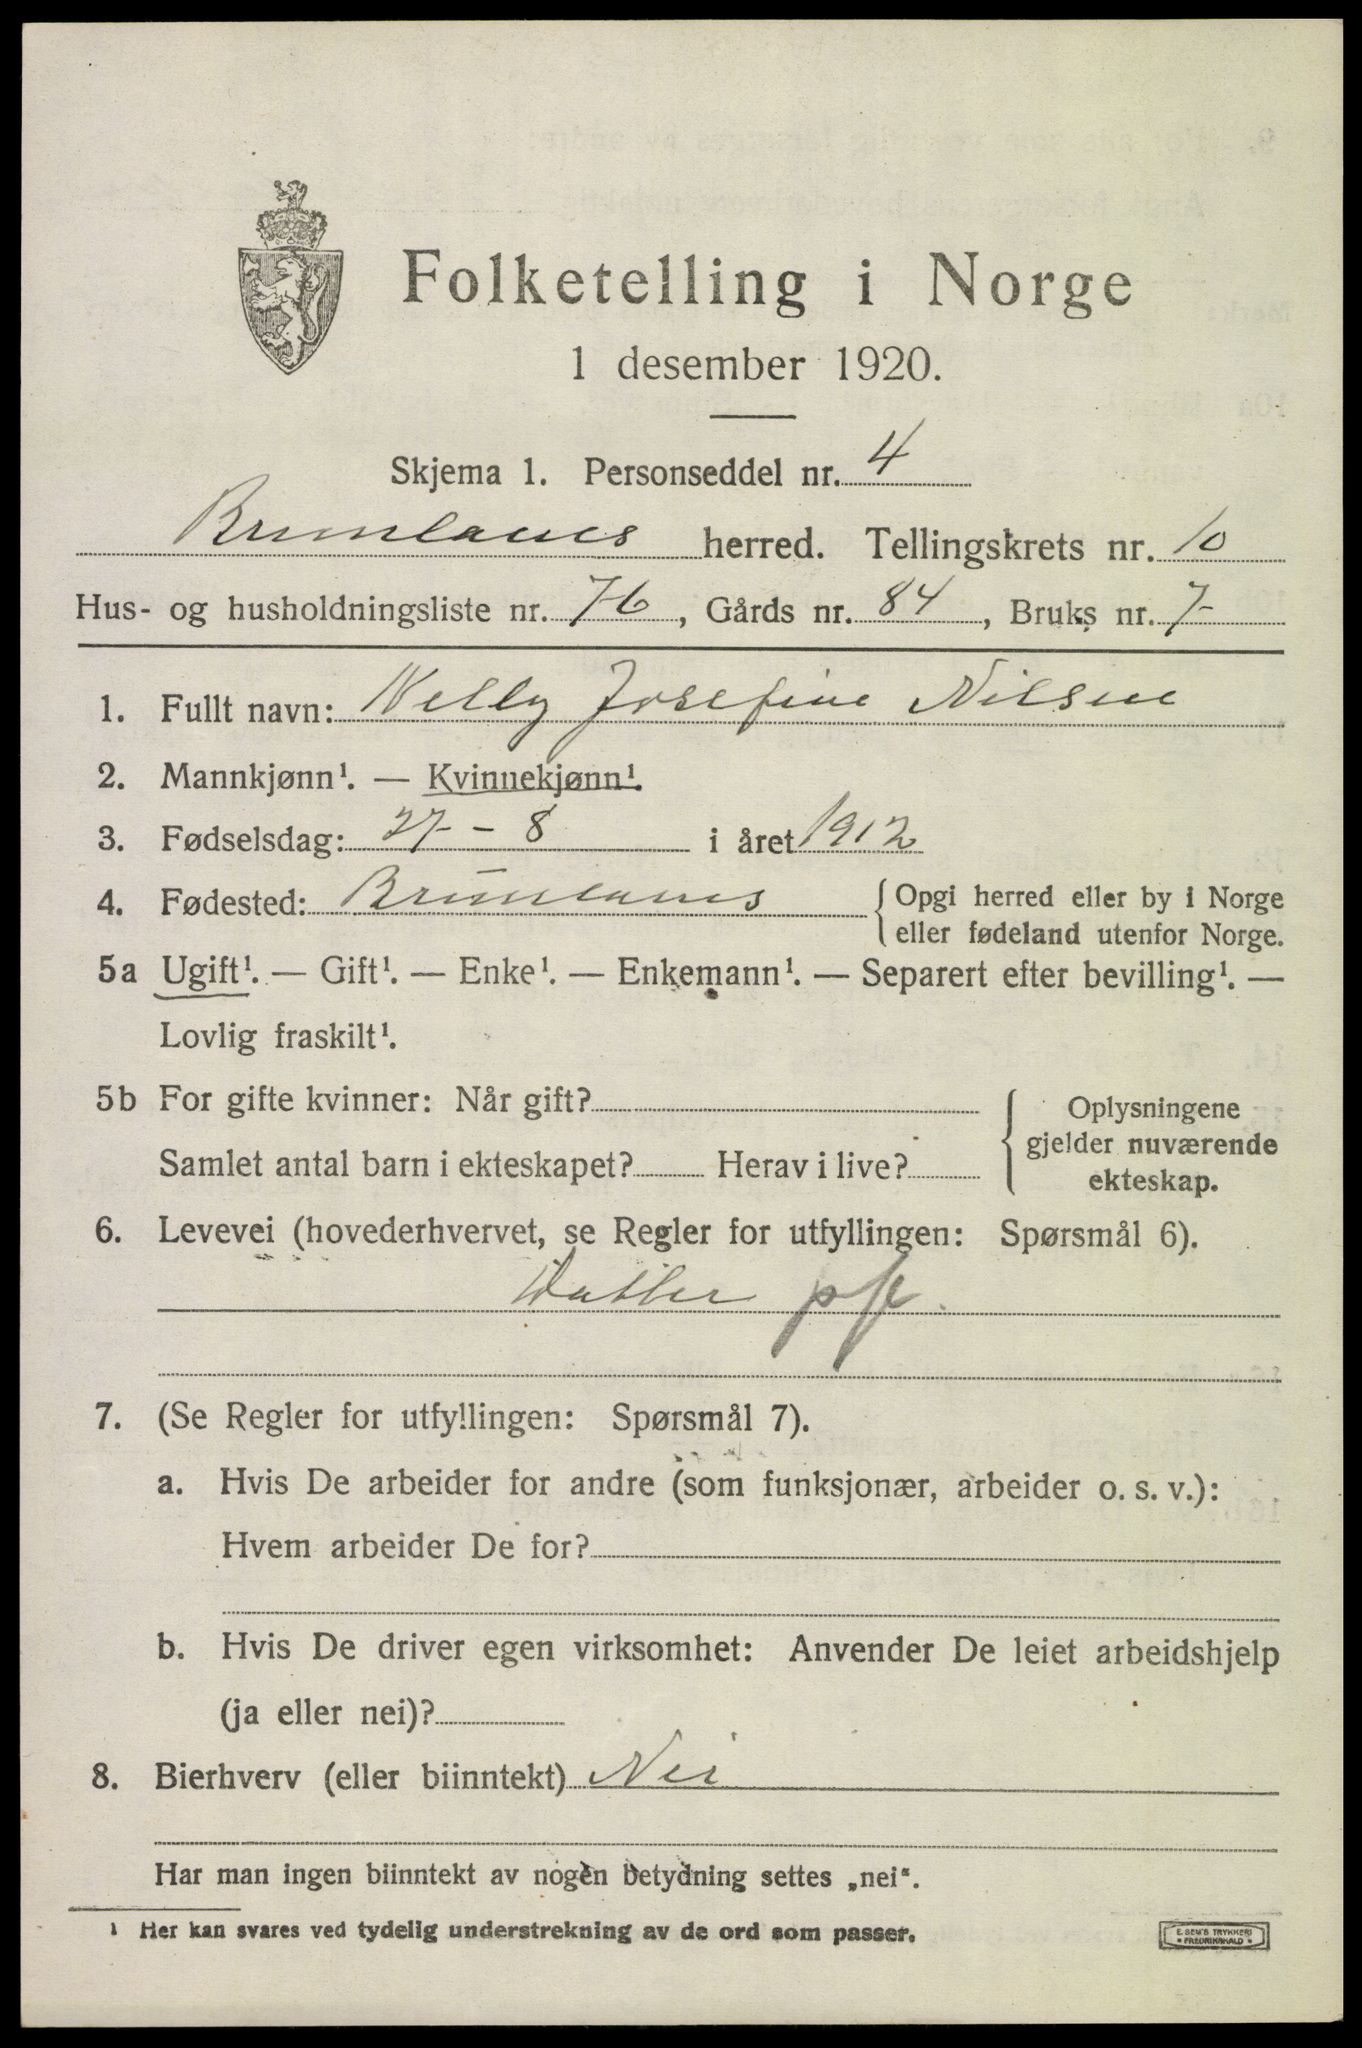 Folketelling i Norge
1 desember 1920.
Skjema 1. Personseddel nr. 4
Brunlanes herred. Tellingskrets nr. 10
Hus- og husholdningsliste nr. 76, Gårds nr. 84, Bruks nr. 7
1. Fullt navn: Nelly Josefine Nilsen
2. Mannkjønn¹. — Kvinnekjønn¹.
3. Fødselsdag: 27 - 8 i året 1912
4. Fødested: Brunlanes { Opgi herred eller by i Norge
eller fødeland utenfor Norge.
5a Ugift¹. — Gift¹. — Enke¹. — Enkemann¹. — Separert efter bevilling¹. —
Lovlig fraskilt¹.
5b For gifte kvinner: Når gift?
Samlet antal barn i ekteskapet? Herav i live?
Oplysningene
gjelder nuværende
ekteskap.
6. Levevei (hovederhvervet, se Regler for utfyllingen: Spørsmål 6).
Datter
7. (Se Regler for utfyllingen: Spørsmål 7).
a. Hvis De arbeider for andre (som funksjonær, arbeider o. s. v.):
Hvem arbeider De for?
b. Hvis De driver egen virksomhet: Anvender De leiet arbeidshjelp
(ja eller nei)?
8. Bierhverv (eller biinntekt) Nei
Har man ingen biinntekt av nogen betydning settes „nei“.
¹ Her kan svares ved tydelig understrekning av de ord som passer.
E. SEM'S TRYKKERI
FREDRIKSHALD